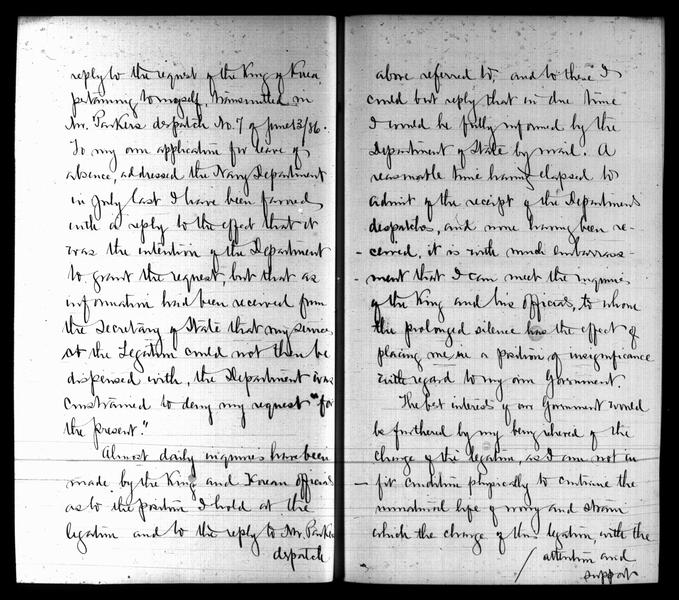 reply to the request of the King of Korea
pertaining to myself, transmitted in
Mr. Parker's dispatch No. 7 of June 13/86.
To my own application for leave of
absence, addressed the Navy Department
in July last I have been favored
with a reply to the effect that it
was the intention of the Department
to grant the request, but that as
information had been received from
the Secretary of State that my services
at the Legation could not then be
dispensed with, the Department was
constrained to deny my request "for
the present."
Almost daily inquiries have been
made by the King and Korean officials
as to the position I hold at the
legation and to the reply to Mr. Parker
dispatch
above referred to, and to these I
could but reply that in due time
I would be fully informed by the
Department of State by mail. A
reasonable time having elapsed to
admit of the receipt of the Department's
despatches, and none having been re-
ceived, it is with much embarrass-
ment that I can meet the inquiries
of the King and his officials, to whom
this prolonged silence has the effect of
placing me in a position of insignificance
with regard to my own Government.
The best interests of our Government would
be furthered by my being relieved of the
charge of the legation, as I am not in
fit condition physically to continue the
unnatural life of worry and strain
which the charge of this legation, with the
attention and
support